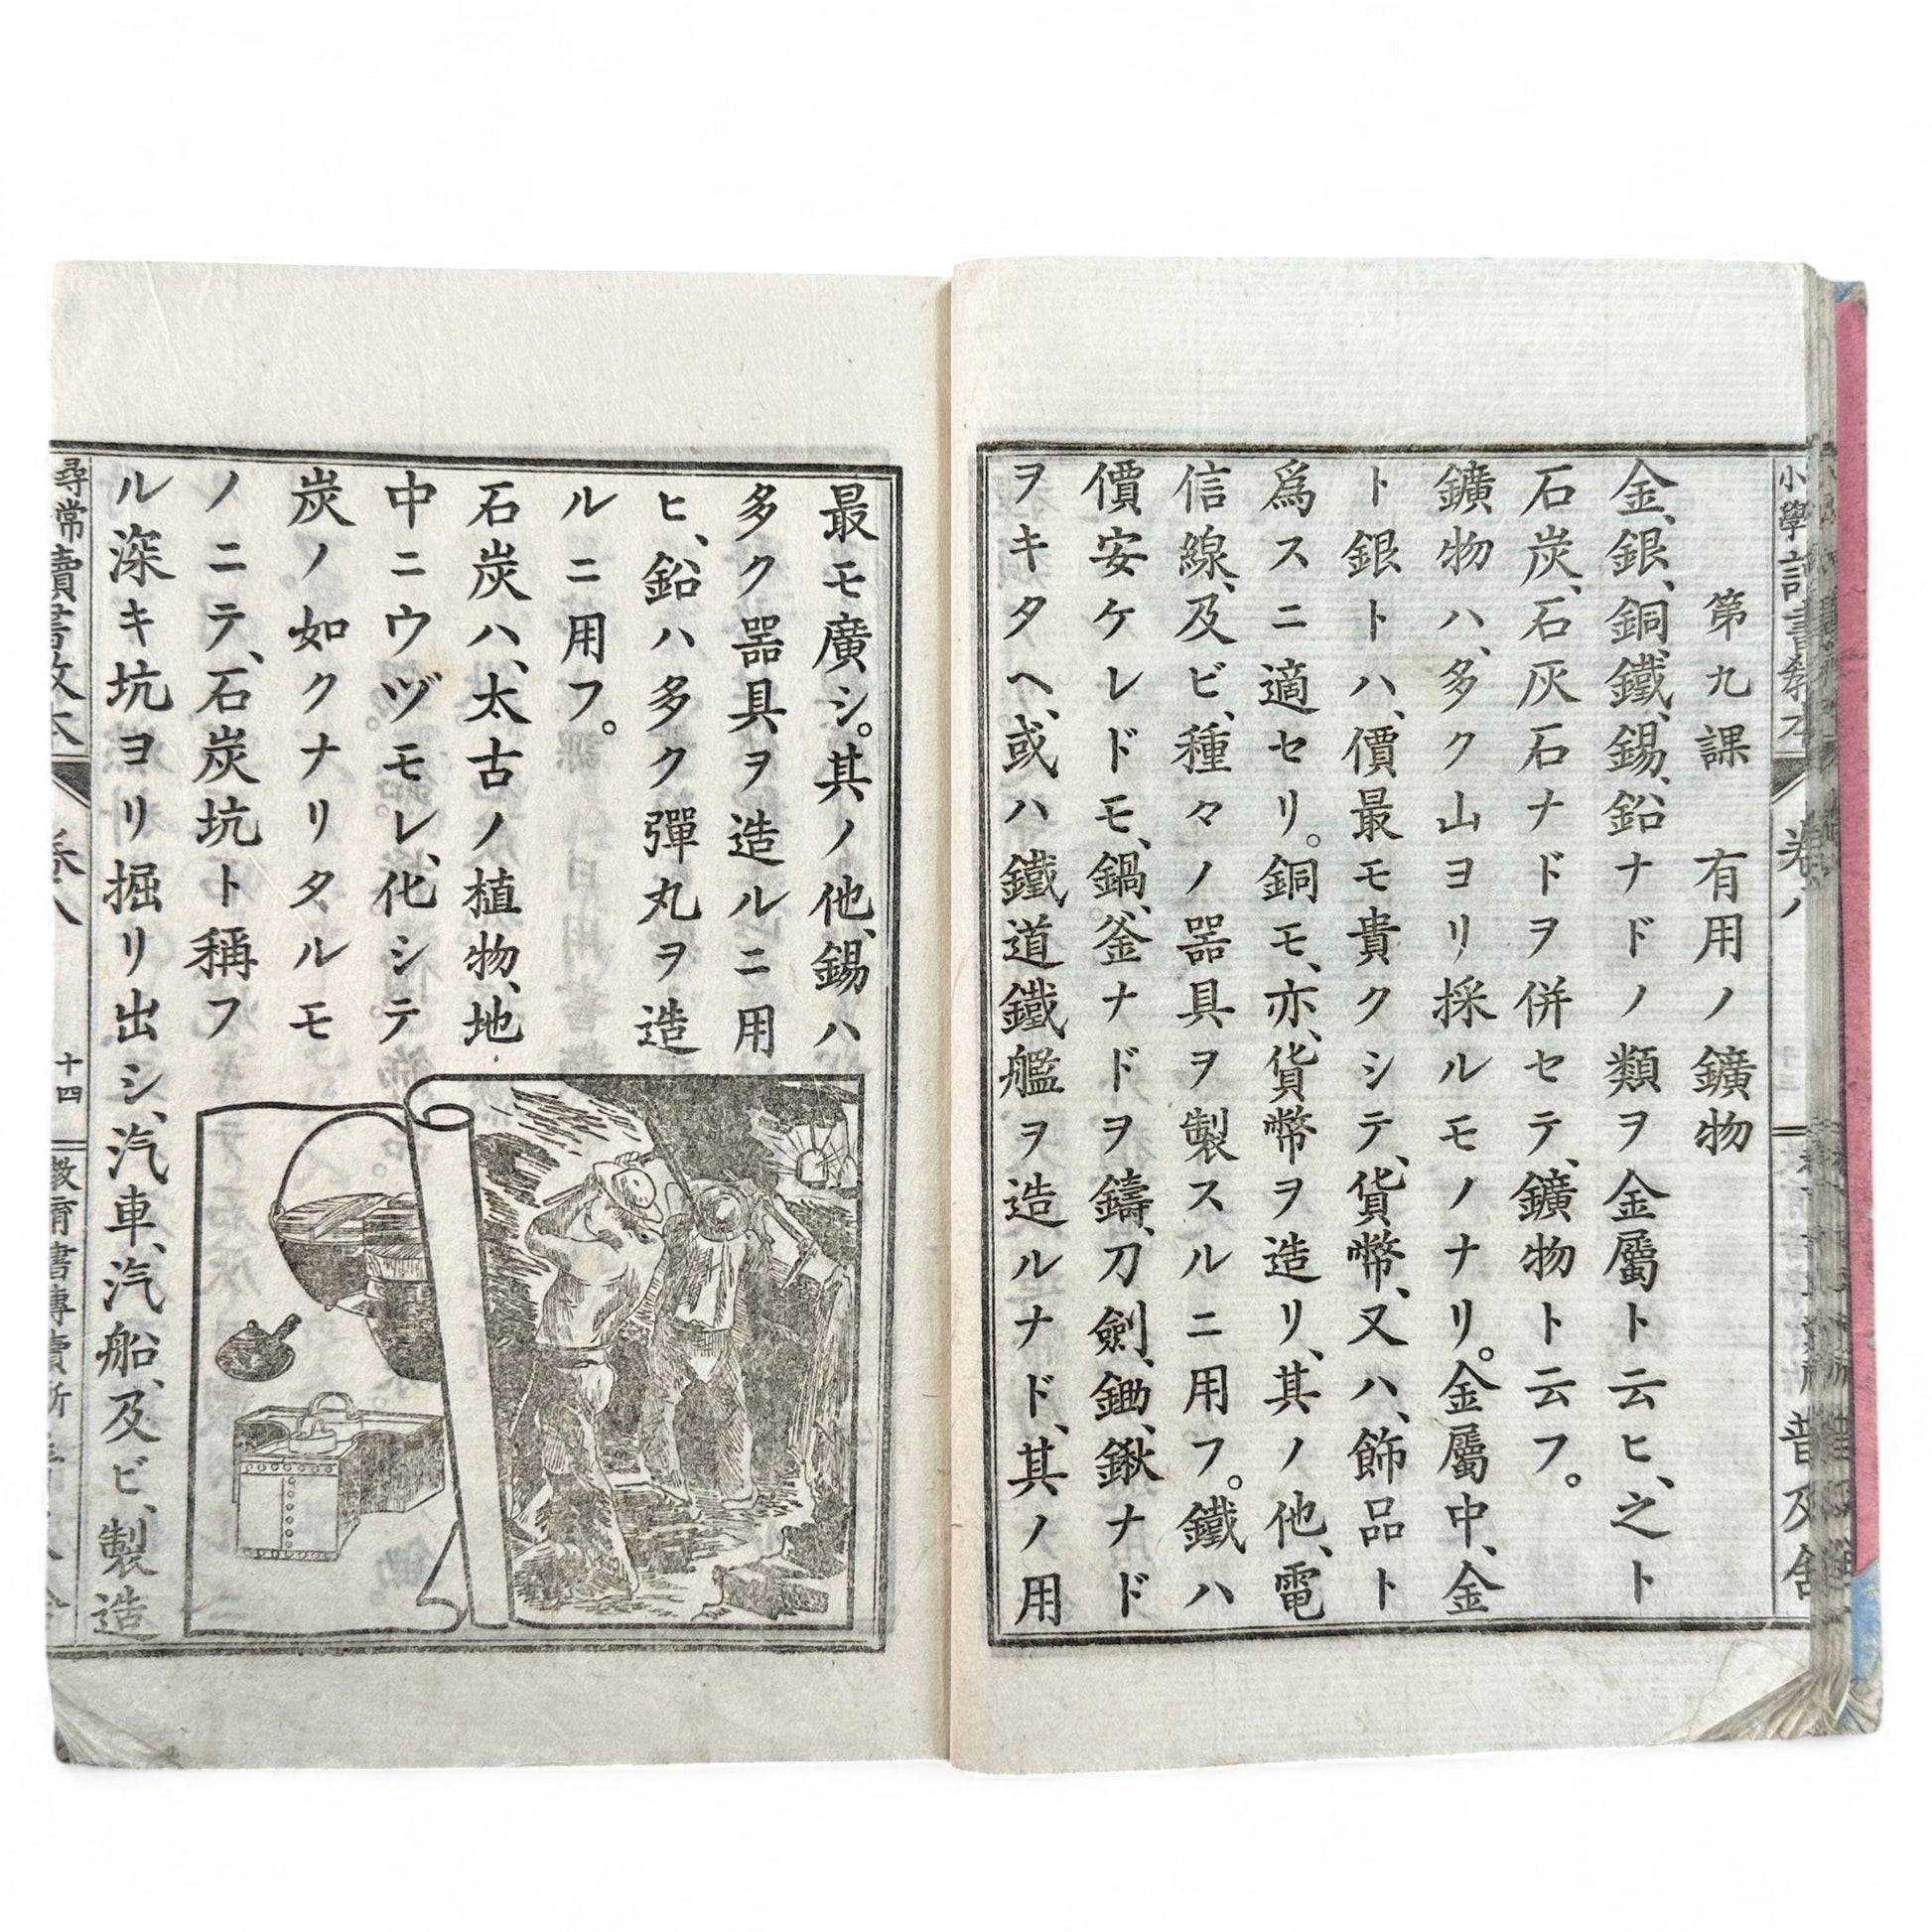 第九課　有用ノ鑛物
金、銀、銅、鐵、錫、鉛ナドノ類ヲ金屬ト云ヒ、之ト
石炭、石灰石ナドヲ併セテ、鑛物ト云フ。
鑛物ハ、多ク山ヨリ採ルモノナリ。金屬中、金
ト銀トハ、價最モ貴クシテ、貨幣、又ハ、飾品ト
爲スニ適セリ。銅モ、亦、貨幣ヲ造リ、其ノ他、電
信線、及ビ、種々ノ器具ヲ製スルニ用フ。鐵ハ
價安ケレドモ、鍋、釜ナドヲ鑄、刀劍、鋤、鍬ナド
ヲキタヘ、或ハ鐵道鐵艦ヲ造ルナド、其ノ用
最モ廣シ。其ノ他、錫ハ
多ク器具ヲ造ルニ用
ヒ、鉛ハ多ク彈丸ヲ造
ルニ用フ。
石炭ハ、太古ノ植物、地
中ニウヅモレ、化シテ
炭ノ如クナリタルモ
ノニテ、石炭坑ト稱フ
ル深キ坑ヨリ掘リ出シ、汽車、汽船、及ビ、製造
尋常讀書教本
卷八
十四
教育書專賣所